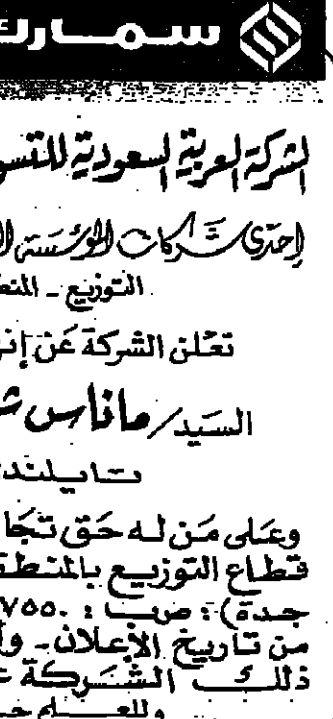 سمارك
الشركة العربية السعودية للتسو
إحدى شركات المؤسسة ال
التوزيع - المنط
تعلن الشركة عن إنه
السيد / ماناس ش
تايلند
وعلى من له حق تجا
قطاع التوزيع بالمنطقة
جدة) : ص ب : ٧٥٥٠
من تاريخ الإعلان - وا
ذلك الشركة
وللعلم